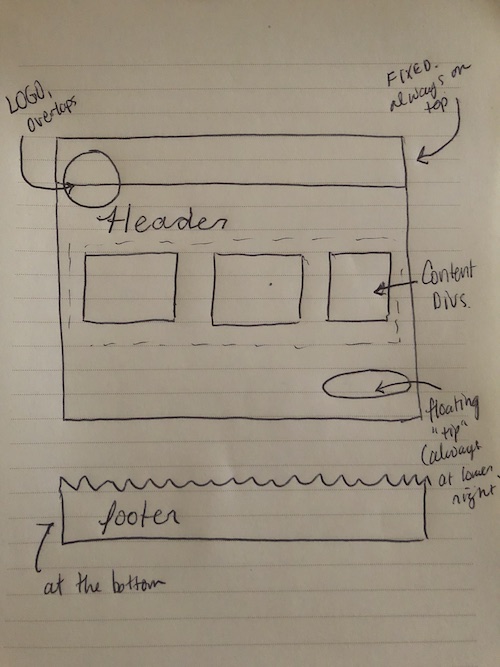 LOGO,
overlaps
FIXED.
always on
top
Header
Content
Divs.
floating
"tip"
(always
at lower
right)
footer
at the bottom